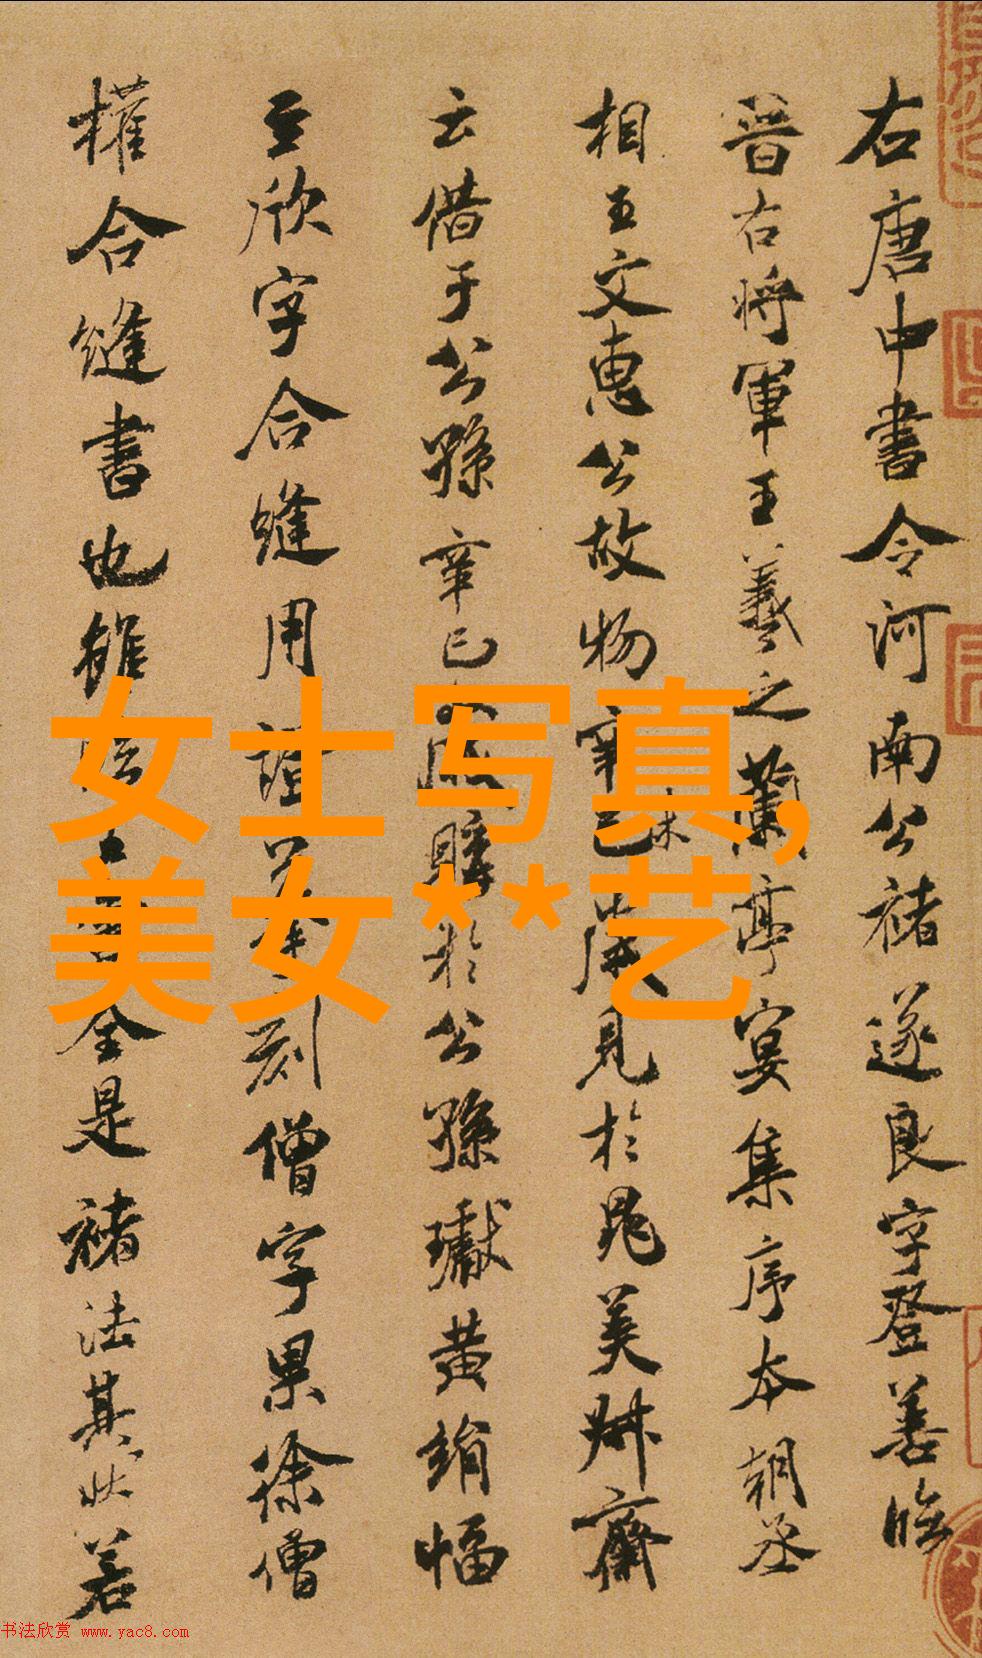 右唐中書令河南公褚遂良字登善臨
晉右將軍王羲之蘭亭宴集序本朝丞
相王文惠公故物辛巳歲見於晁美叔齋
云借于公孫辛巳歲購於公孫瓛黃絹幅
至欣字合縫用證摹刻僧字果徐僧
權合縫書也雖全是褚法其狀若
女士写真,
美女**艺
书法欣赏 www.yac8.com